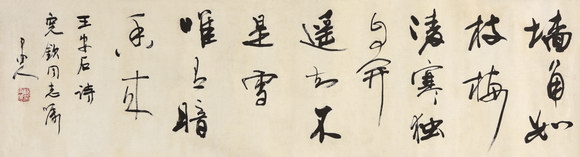 墙角数
枝梅
凌寒独
自开
遥知不
是雪
唯有暗
香来
王安石诗
钦同志嘱